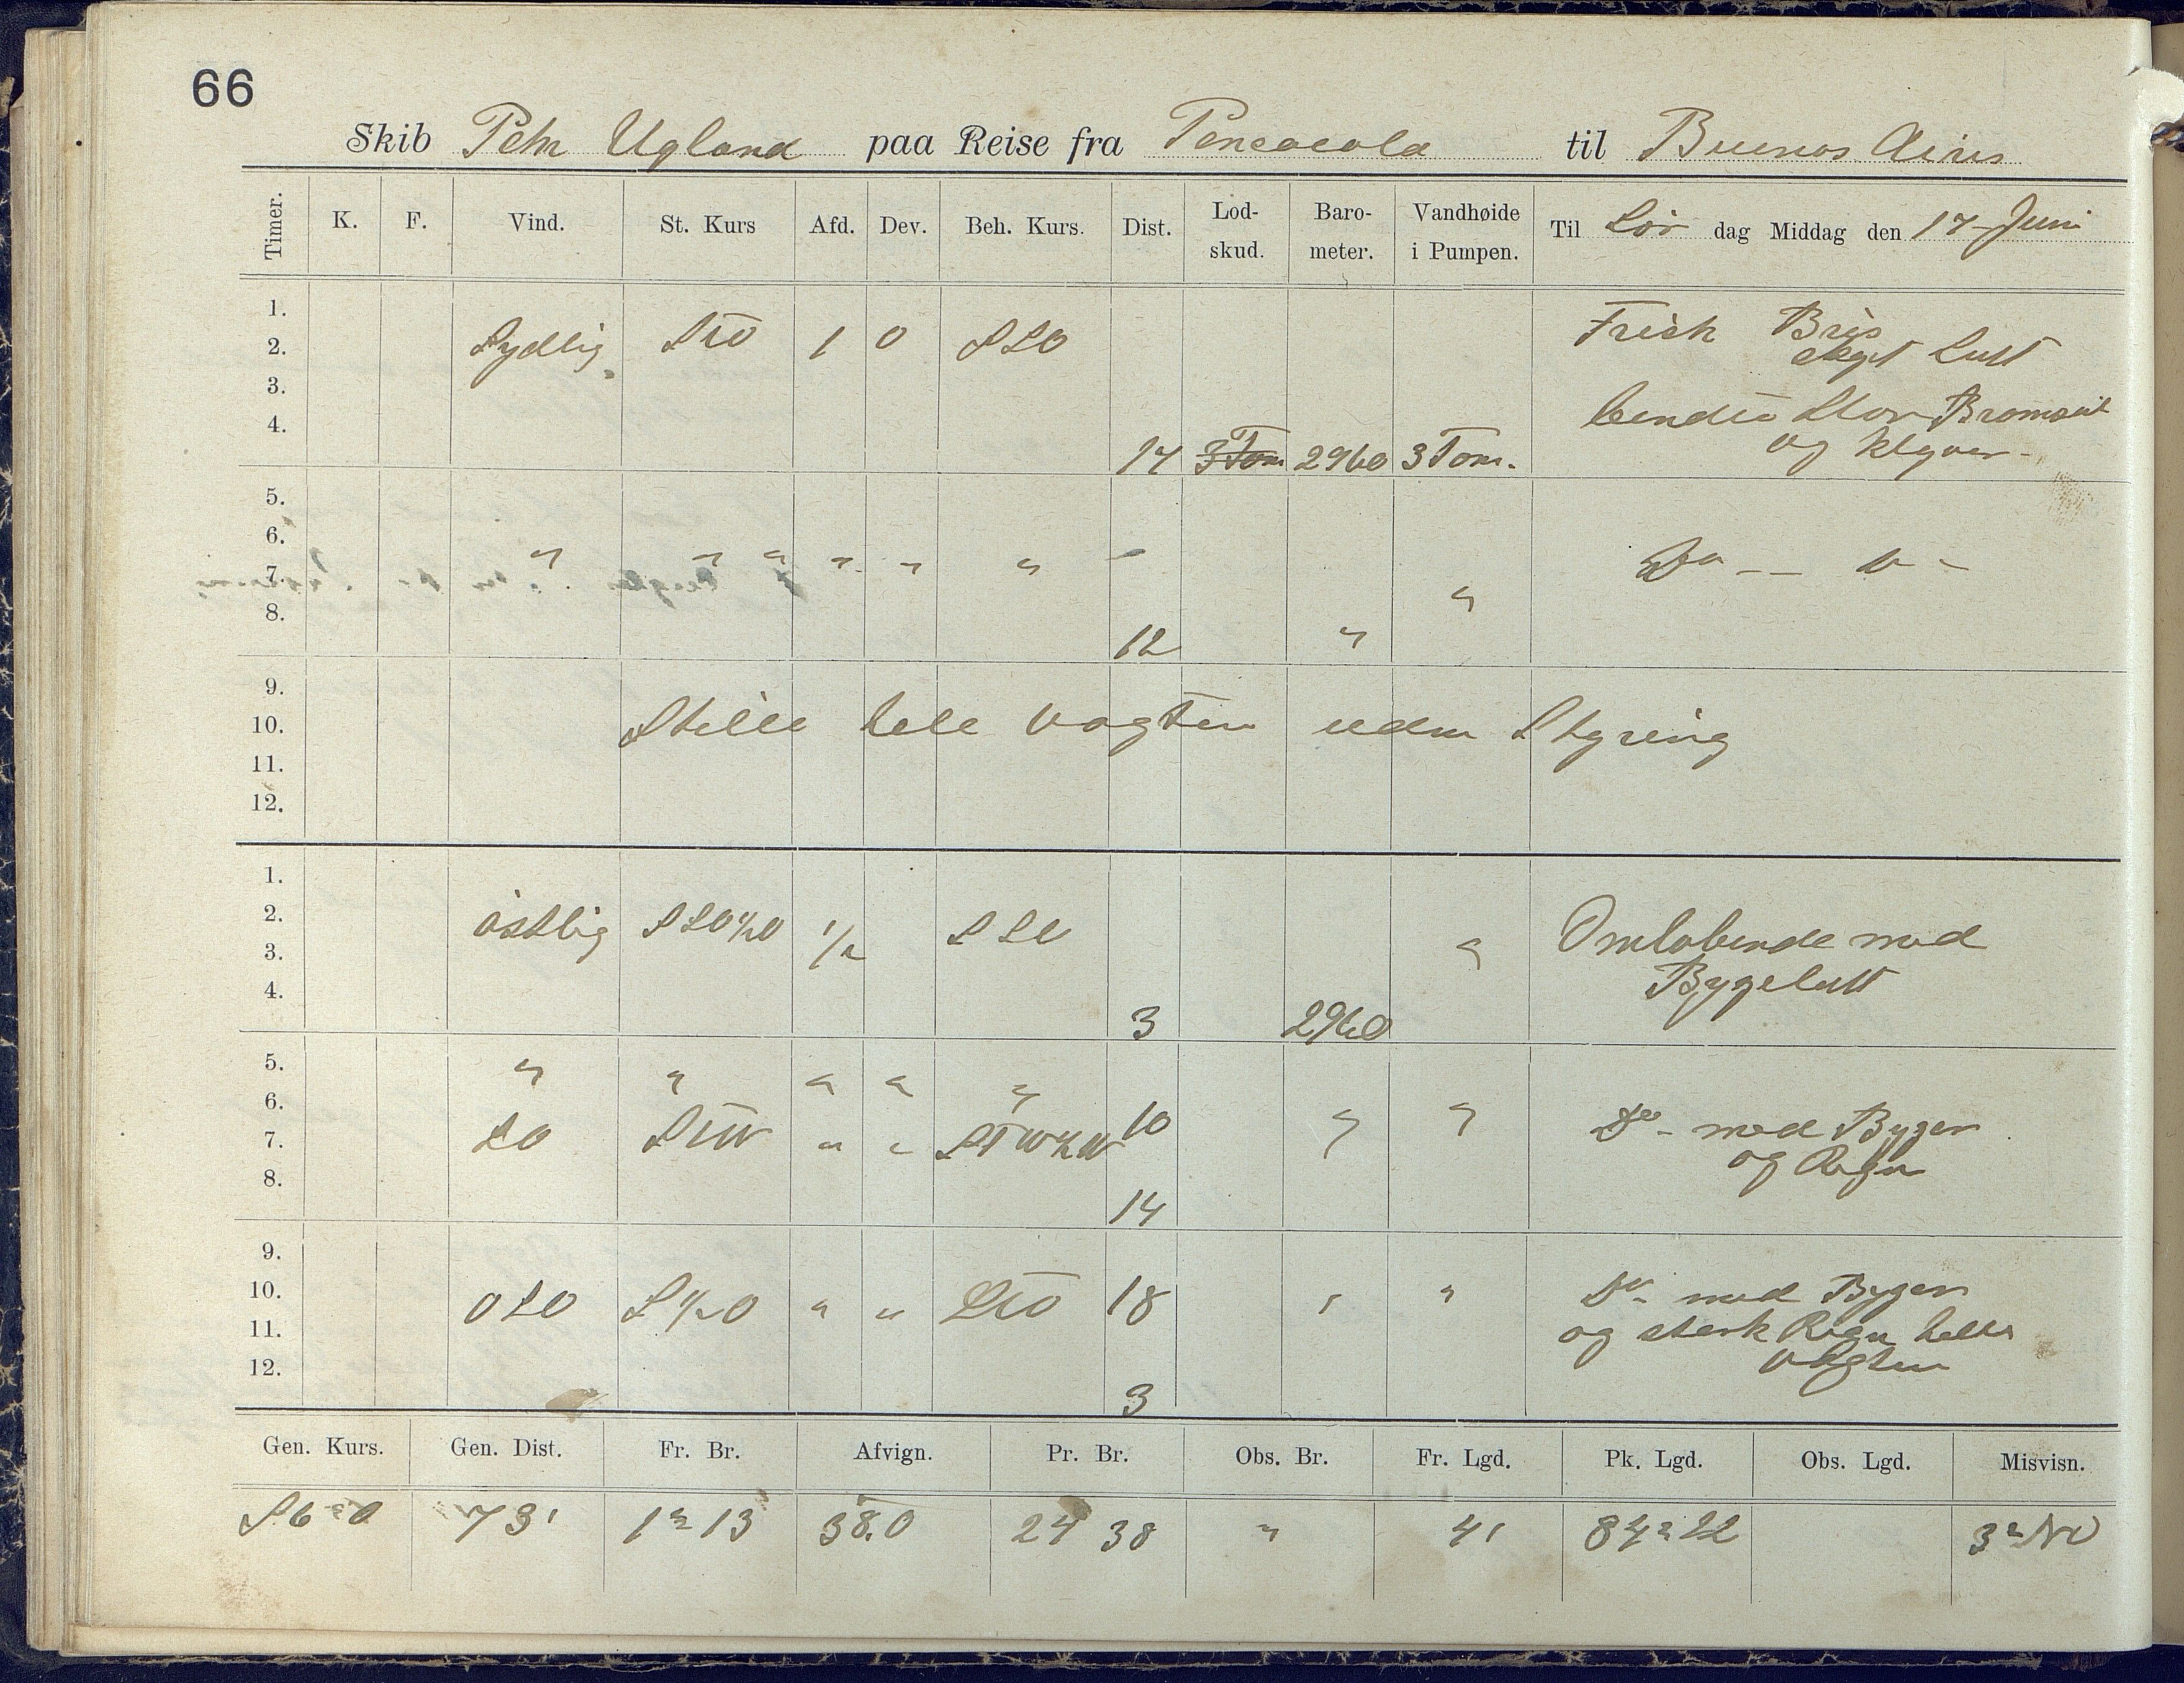 66
Skib Pehr Ugland paa Reise fra Pencacola til Buenos Aires
Timer. K. F. Vind. St. Kurs Afd. Dev. Beh. Kurs. Dist. Lod- skud. Baro- meter. Vandhøide i Pumpen. Til Lør dag Middag den 17 Juni
1. Frisk Bris
2. Sydlig StO 1 0 SSO skyet Luft
3. Stor Bramseil
4. 17 3 Tom 2960 3 Tom. og Klyver-
5.
6. " " " " " " - Do -- v -
7. "
8. 12 "
9.
10. Stille hele Vagten uden Styring
11.
12.
1.
2. østlig SSO½O ½ SSO " Omløbende med
3. Bygeluft
4. 3 2960
5. " " " " "
6. 10 " " Do - med Byger
7. SO StW " " StW½W og Regn
8. 14
9.
10. OSO S½O " " StO 18 " " Do - med Byger
11. og sterk Regn hele
12. Vagten
3
Gen. Kurs. Gen. Dist. Fr. Br. Afvign. Pr. Br. Obs. Br. Fr. Lgd. Pk. Lgd. Obs. Lgd. Misvisn.
S 6° O 73' 1° 13 38.0 24 38 " 41 84° 22 3° NO